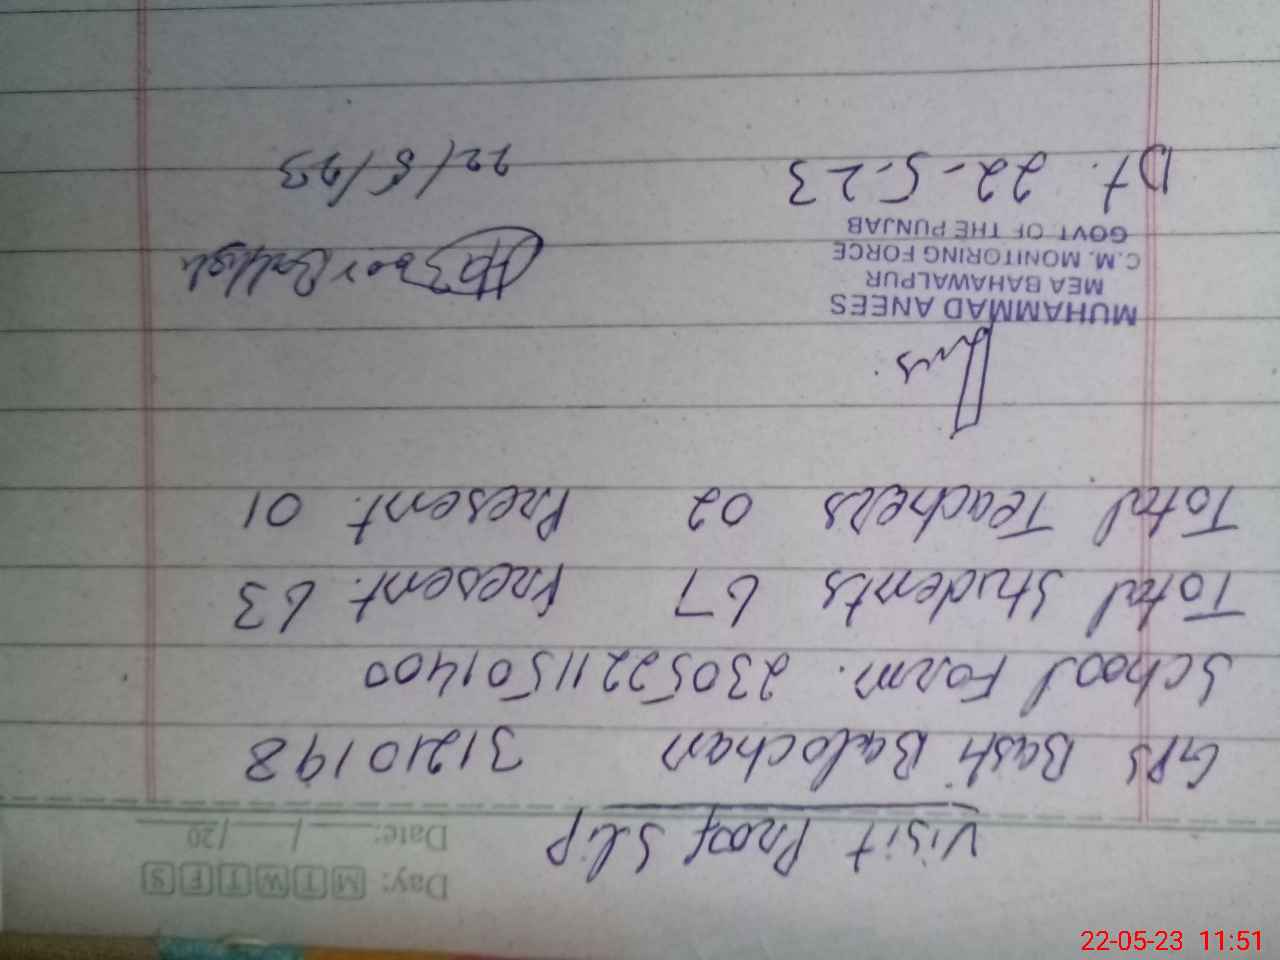 Day: M T W T F S
Date: ___/___/20___
Visit Proof Slip
GPS Basti Balochan 31210198
School Form. 23052211501400
Total Students 67 Present. 63
Total Teachers 02 Present. 01
MUHAMMAD ANEES
MEA BAHAWALPUR
C.M. MONITORING FORCE
GOVT. OF THE PUNJAB
Dt. 22-5-23 22/5/23
22-05-23 11:51